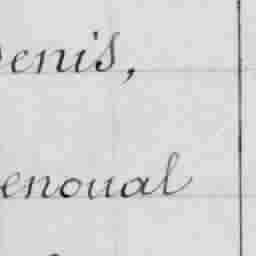 enis,
enoual